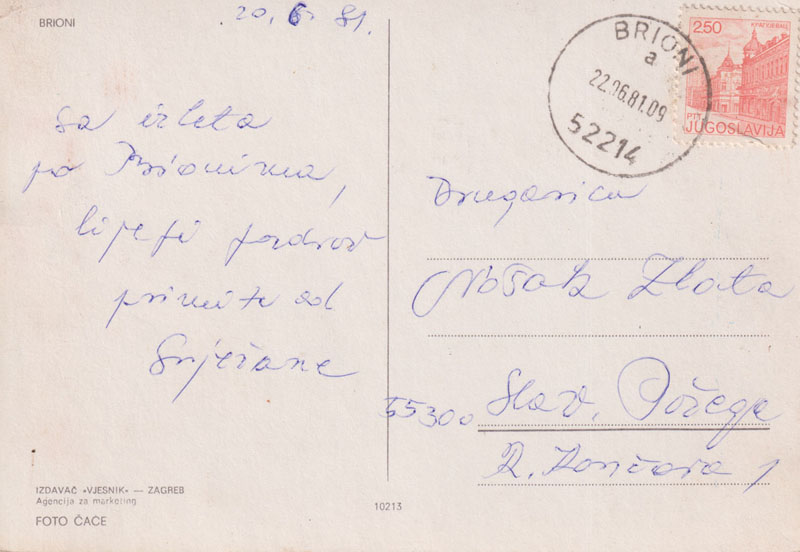 BRIONI
20. 6 81.
sa izleta
po Brionima,
lijepi pozdrav
primite od
Snježane
BRIONI
a
22.06.81.09
52214
2.50
PTT
JUGOSLAVIJA
Drugarica
Zlata
55300 Slav. Požega
R. Končara 1
IZDAVAČ »VJESNIK« — ZAGREB
Agencija za marketing
FOTO ČAČE
10213